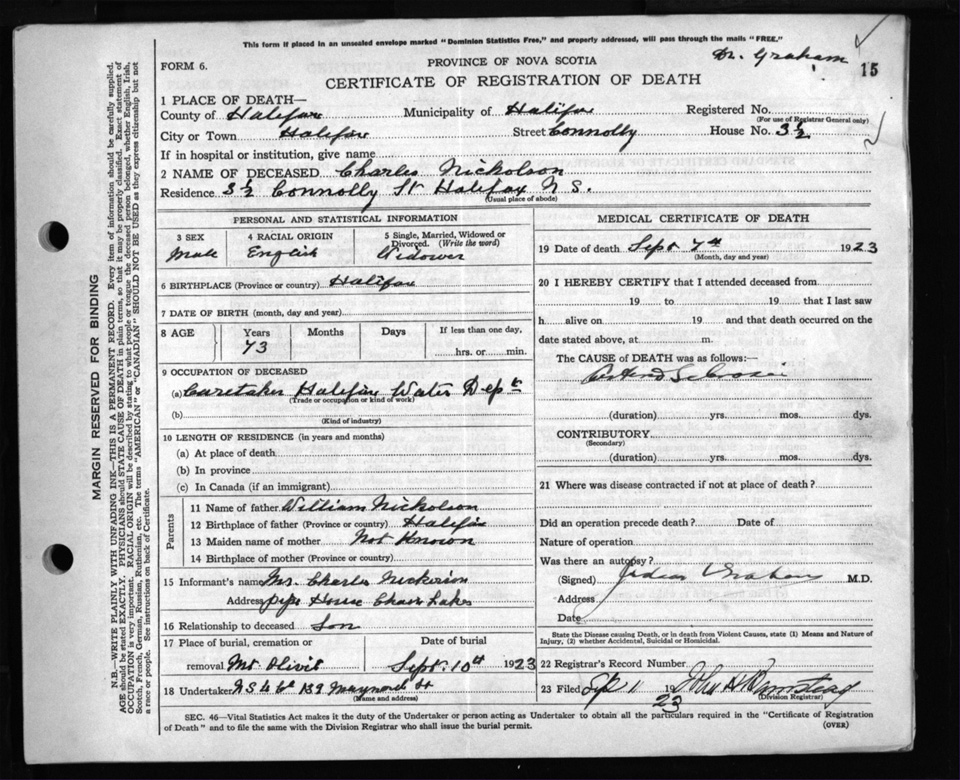 This form if placed in an unsealed envelope marked "Dominion Statistics Free," and properly addressed, will pass through the mails "FREE."
Dr. Graham
15
FORM 6.
PROVINCE OF NOVA SCOTIA
CERTIFICATE OF REGISTRATION OF DEATH
1 PLACE OF DEATH—
County of Halifax Municipality of Halifax Registered No.
(For use of Registrar General only)
City or Town Halifax Street Connolly House No. 3½
If in hospital or institution, give name
2 NAME OF DECEASED Charles Nickolson
Residence 3½ Connolly St Halifax N S.
(Usual place of abode)
PERSONAL AND STATISTICAL INFORMATION
3 SEX
Male
4 RACIAL ORIGIN
English
5 Single, Married, Widowed or Divorced. (Write the word)
Widower
6 BIRTHPLACE (Province or country) Halifax
7 DATE OF BIRTH (month, day and year)
8 AGE Years Months Days If less than one day,
73 hrs. or min.
9 OCCUPATION OF DECEASED
(a) Caretaker Halifax Water Dept
(Trade or occupation or kind of work)
(b)
(Kind of industry)
10 LENGTH OF RESIDENCE (in years and months)
(a) At place of death
(b) In province
(c) In Canada (if an immigrant)
Parents
11 Name of father William Nickolson
12 Birthplace of father (Province or country) Halifax
13 Maiden name of mother Not Known
14 Birthplace of mother (Province or country)
15 Informant's name Mr. Charles Nickerson
Address Pipe House Chain Lakes
16 Relationship to deceased Son
17 Place of burial, cremation or Date of burial
removal Mt Olivit Sept. 10th 1923
18 Undertaker N S U Co 139 Maynard St
(Name and address)
MEDICAL CERTIFICATE OF DEATH
19 Date of death Sept 7th 1923
(Month, day and year)
20 I HEREBY CERTIFY that I attended deceased from
19 to 19 that I last saw
h alive on 19 and that death occurred on the
date stated above, at m.
The CAUSE of DEATH was as follows:—
(duration) yrs. mos. dys.
CONTRIBUTORY
(Secondary)
(duration) yrs. mos. dys.
21 Where was disease contracted if not at place of death?
Did an operation precede death? Date of
Nature of operation
Was there an autopsy?
(Signed) Graham M.D.
Address
Date
State the Disease causing Death, or in death from Violent Causes, state (1) Means and Nature of
Injury, (2) whether Accidental, Suicidal or Homicidal.
22 Registrar's Record Number
23 Filed Sep 11 1923
(Division Registrar)
SEC. 46—Vital Statistics Act makes it the duty of the Undertaker or person acting as Undertaker to obtain all the particulars required in the "Certificate of Registration
of Death" and to file the same with the Division Registrar who shall issue the burial permit.
(OVER)
MARGIN RESERVED FOR BINDING
N.B.—WRITE PLAINLY WITH UNFADING INK—THIS IS A PERMANENT RECORD. Every item of information should be carefully supplied.
AGE should be stated EXACTLY. PHYSICIANS should STATE CAUSE OF DEATH in plain terms, so that it may be properly classified. Exact statement of
OCCUPATION is very important. RACIAL ORIGIN will be described by stating to what people or tongue the deceased person belonged, whether English, Irish,
Scotch, French, German, Russian, Ruthenian, etc. The terms "AMERICAN" or "CANADIAN" SHOULD NOT BE USED as they express citizenship but not
a race or people. See instructions on back of Certificate.